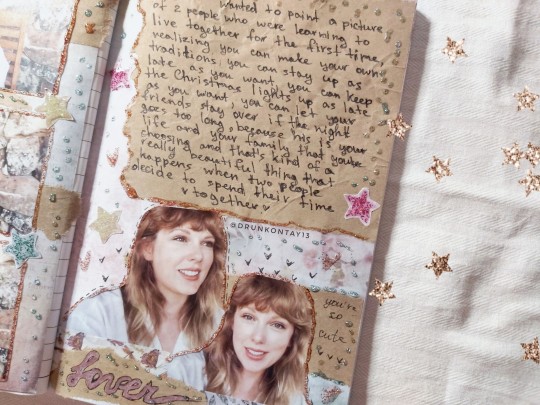 wanted to paint a picture
of 2 people who were learning to
live together for the first time
realizing you can make your own
traditions, you can stay up as
late as you want, you can keep
the Christmas lights up as late
as you want, you can let your
friends stay over if the night
goes too long, because this is your
life and your family that you're
choosing and that's kind of a
really beautiful thing that
happens when two people
decide to spend their time
together
@DRUNKONTAY13
you're
so
cute
Lover